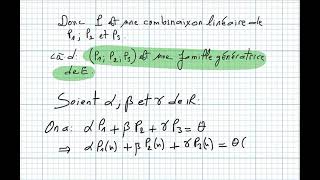 Donc P est une combinaison linéaire de
P₁, P₂ et P₃.
càd. (P₁, P₂, P₃) est une famille génératrice
de E.
Soient α, β et γ de ℝ.
On a : αP₁ + βP₂ + γP₃ = θ
⇒ αP₁(x) + βP₂(x) + γP₃(x) = θ(